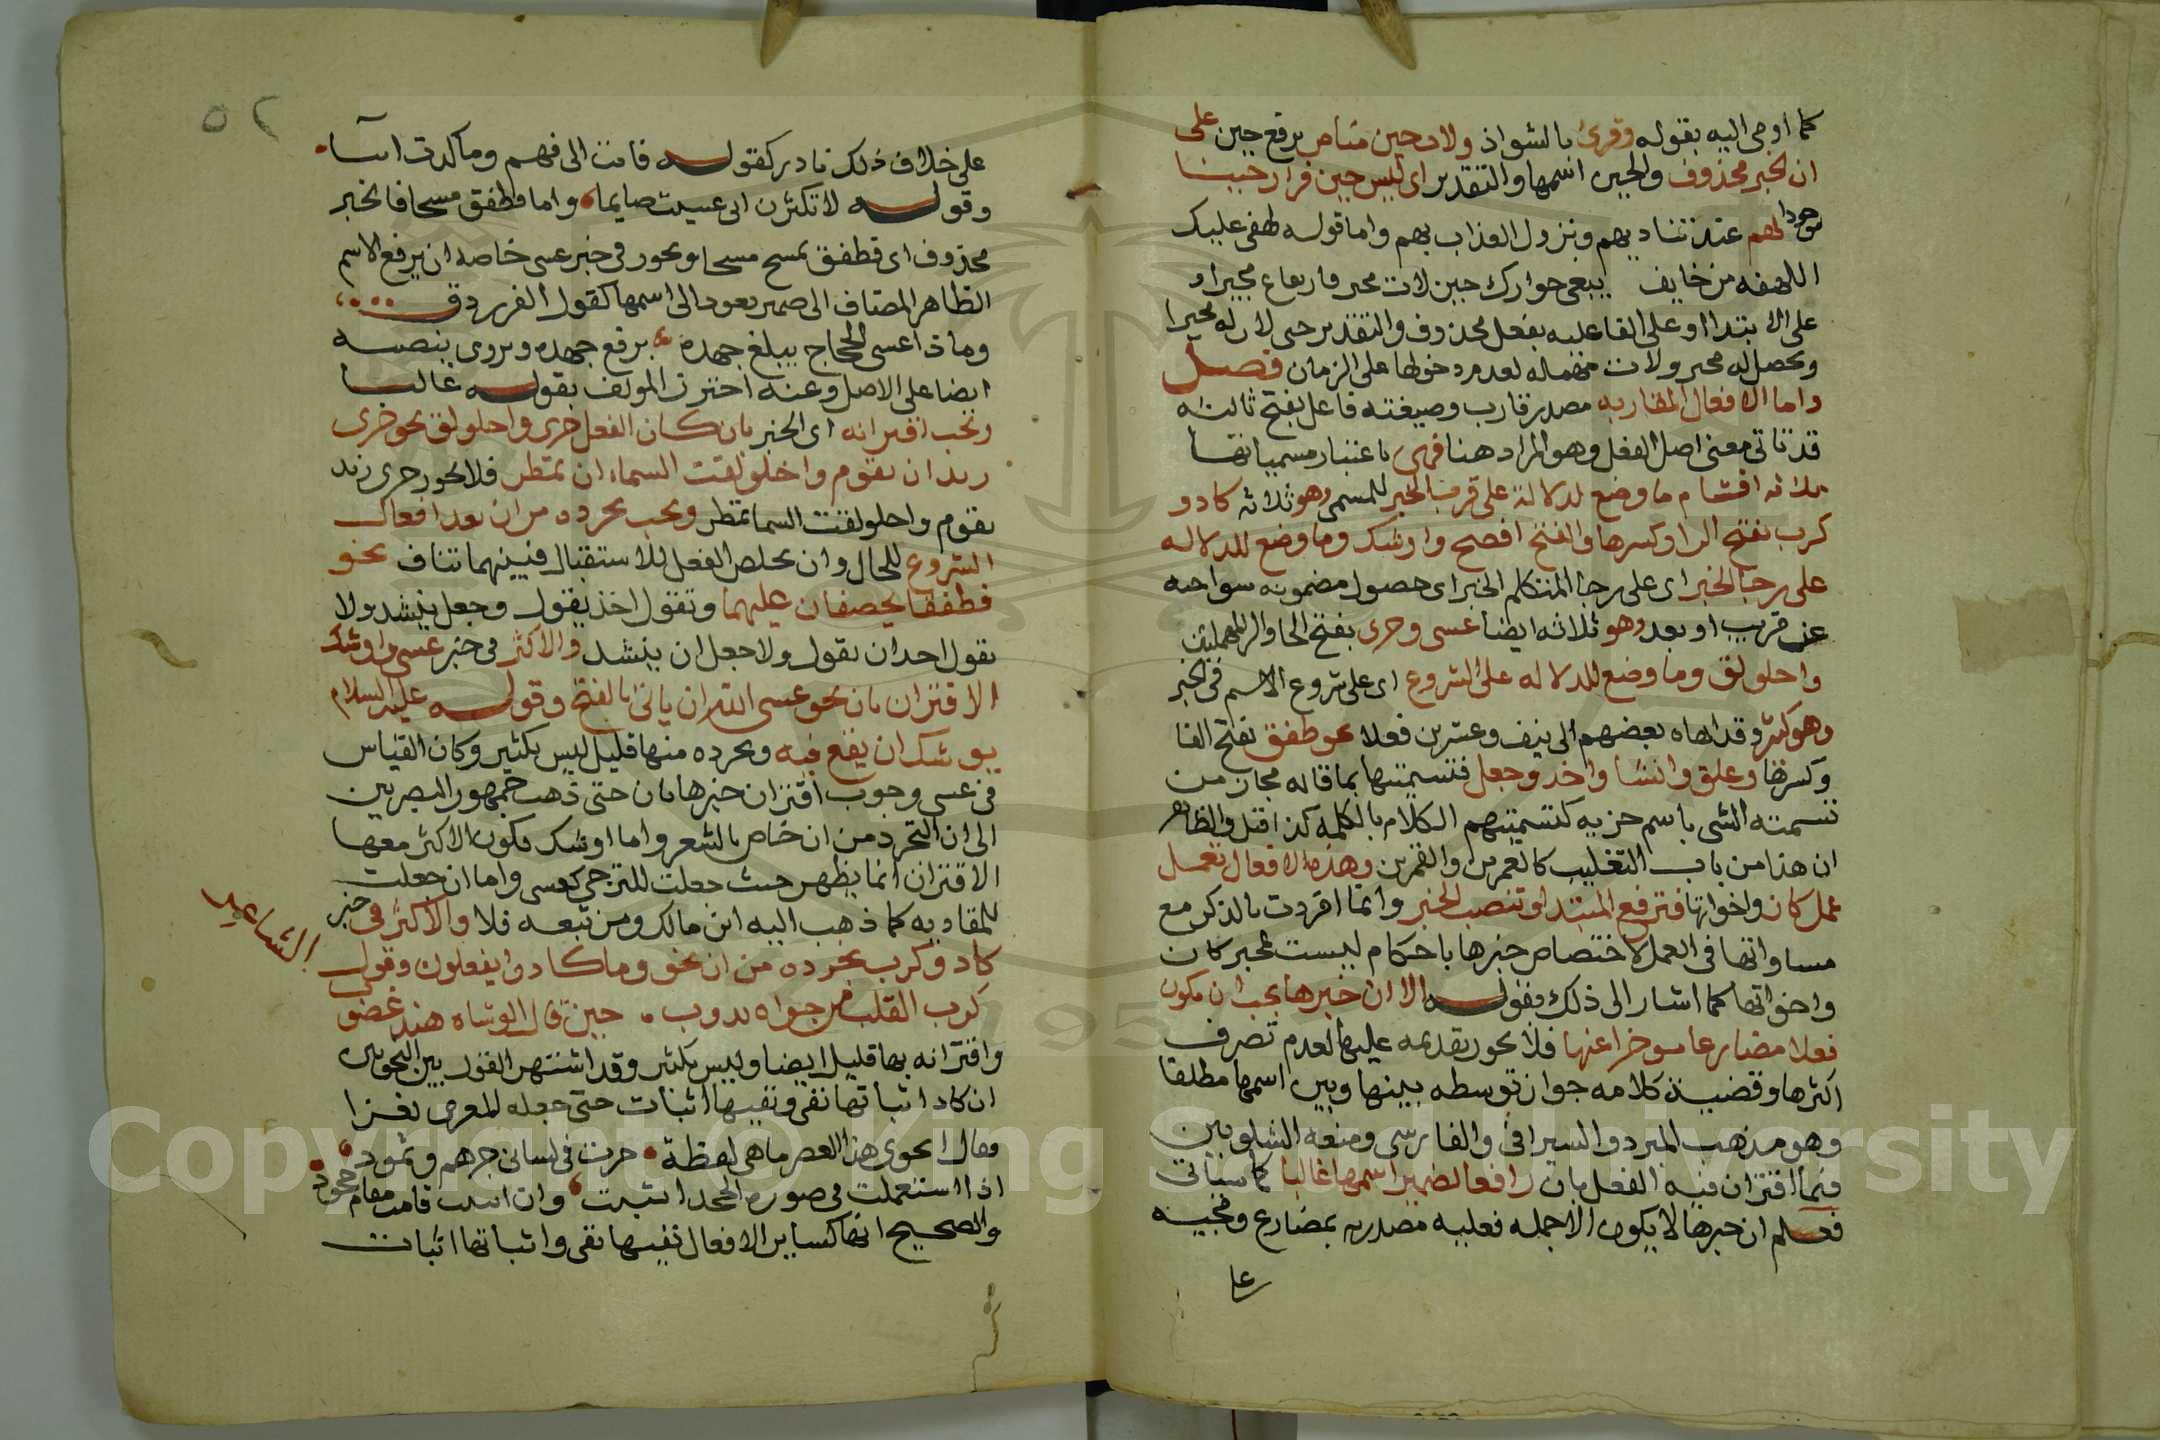 كما اومى اليه بقوله وقرئ بالشواذ ولات حين مناص برفع حين على
ان الخبر محذوف والحين اسمها والتقدير اى ليس حين فرار حينا
موجودا لهم عند تناديهم ونزول العذاب بهم واما قوله لهفى عليك
اللهفه من خايف يبغى جوارك حين لات مجير فارتفاع مجير او
على الابتدا او على الفاعليه بفعل محذوف والتقدير حين لات له مجيرا
ويحصل له مجير ولات مهمله لعدم دخولها على الزمان فصل
واما الافعال المقاربه مصدر قارب وصيغته فاعل بفتح ثالثه
قد تاتى معنى اصل الفعل وهو المراد هنا فهى باعتبار مسمياتها
ثلاثه اقسام ما وضع لدلالة على قرب الخبر للمسمى وهو ثلاثه كاد و
كرب بفتح الرا وكسرها والفتح افصح واوشك وما وضع للدلاله
على رجا الخبر اى على رجا المتكلم الخبر اى حصول مضمونه سوا حه
عن قريب او بعد وهو ثلاثه ايضا عسى وحرى بفتح الحا والرا المهملتين
واخلولق وما وضع للدلاله على الشروع اى على شروع الاسم فى الخبر
وهو كثير وقد انهاه بعضهم الى نيف وعشرين فعلا نحو طفق بفتح الفا
وكسرها وعلق وانشا واخذ وجعل فتسميتها بما قاله مجاز من
تسمية الشى باسم جزيه كتسميتهم الكلام بالكلمه كذا قيل والظاهر
ان هذا من باب التغليب كالعمرين والقمرين وهذه الافعال تعمل
عمل كان واخواتها فترفع المبتدا وتنصب الخبر وانما افردت بالذكر مع
مساواتها فى العمل لاختصاص خبرها باحكام ليست لخبر كان
واخواتها كما اشار الى ذلك بقوله الا ان خبرها يجب ان يكون
فعلا مضارعا موخرا عنها فلا يجوز تقديمه عليها لعدم تصرف
اكثرها وقضية كلامه جواز توسطه بينها وبين اسمها مطلقا
وهو مذهب المبرد والسيرافى والفارسى ومنعه الشلوبين
فيما اقترن فيه الفعل بان رافعا لضمير اسمها غالبا كما سياتى
فعلم ان خبرها لا يكون الا جمله فعليه مصدره بمضارع ومجيه
على
٥٢
على خلاف ذلك نادر كقوله فابت الى فهم وما كدت ائبا
وقوله لا تكثرن انى عسيت صايما واما فطفق مسحا فالخبر
محذوف اى فطفق يمسح مسحا ويجوز فى خبر عسى خاصه ان يرفع الاسم
الظاهر المضاف الى ضمير يعود الى اسمها كقول الفرزدق
وماذا عسى الحجاج يبلغ جهده برفع جهده ويروى بنصبه
ايضا على الاصل وعنه احترز المولف بقوله غالبا
ويجب اقترانه اى الخبر بان كان الفعل حرى واخلولق نحو حرى
زيد ان يقوم واخلولقت السماء ان تمطر فلا يجوز حرى زيد
يقوم واخلولقت السما تمطر ويجب تجرده من ان بعد افعال
الشروع للحال وان يخلص الفعل للاستقبال فبينهما تناف نحو
فطفقا يخصفان عليهما وتقول اخذ يقول وجعل ينشد ولا
تقول اخذ ان يقول ولا جعل ان ينشد والاكثر فى خبر عسى واوشك
الاقتران بان نحو عسى الله ان ياتى بالفتح وقوله عليه السلام
يوشك ان يقع فيه وتجرده منها قليل ليس بكثير وكان القياس
فى عسى وجوب اقتران خبرها بان حتى ذهب جمهور البصريين
الى ان التجرد من ان خاص بالشعر واما اوشك فكون الاكثر معها
الاقتران انما يظهر حيث جعلت للترجى كعسى واما ان جعلت
للمقاربه كما ذهب اليه ابن مالك ومن تبعه فلا والاكثر فى خبر
كاد وكرب تجرده من ان نحو وما كادوا يفعلون وقول الشاعر
كرب القلب من جواه يذوب حين قال الوشاه هند غضو
واقترانه بها قليل ايضا وليس بكثير وقد اشتهر القول بين النحويين
ان كاد اثباتها نفى ونفيها اثبات حتى جعله المعرى لغزا
وقال انحوى هذا العصر ما هى لفظة جرت فى لسانى جرهم وثمود
اذا استعملت فى صورة الجحد اثبتت وان اثبتت قامت مقام جحود
والصحيح انها كساير الافعال نفيها نفى واثباتها اثبات
Copyright © King Saud University
1957